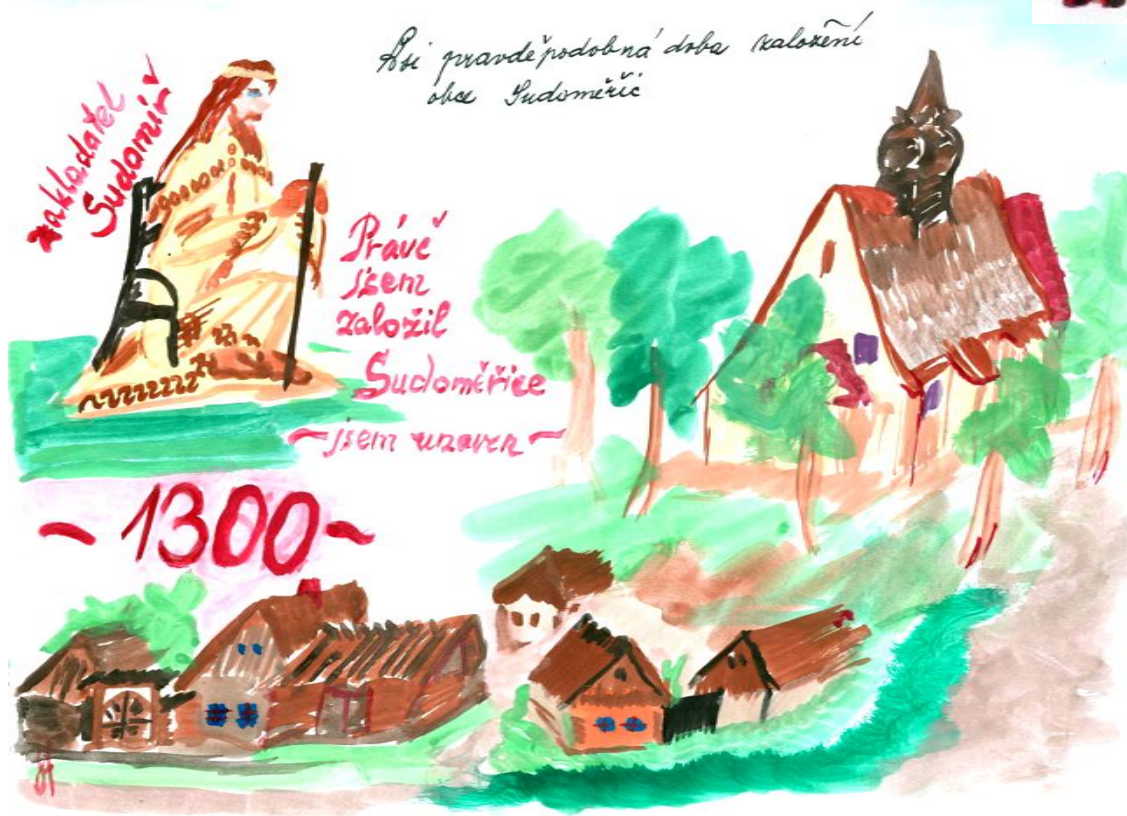 Asi pravděpodobná doba založení
obce Sudoměřic
zakladatel
Sudomír
Právě
jsem
založil
Sudoměřice
~ jsem unaven ~
~ 1300 ~